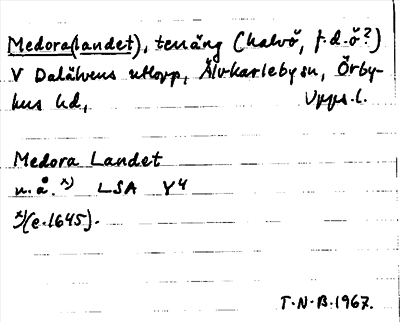 Medora(landet), tenäng (halvö, f.d. ö?)
V Dalälvens utlopp, Älvkarleby sn, Örby-
hus hd, Upps. l.
Medora Landet
u.å. x) LSA Y4
x)(e.1645).
T.N.B.1967.